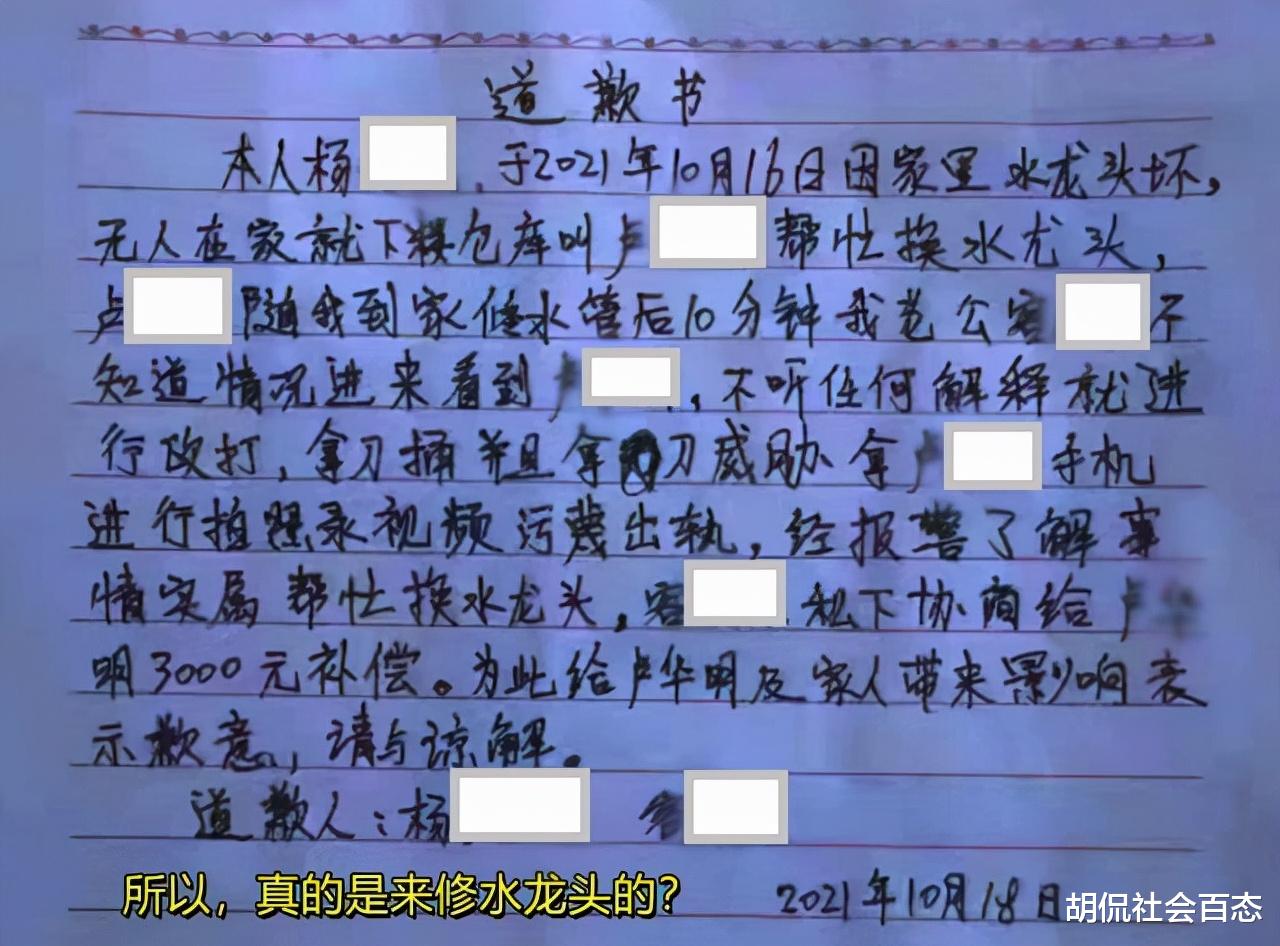 道歉书
本人杨 于2021年10月16日因家里水龙头坏,
无人在家就下楼仓库叫卢 帮忙换水龙头,
卢 随我到家修水管后10分钟我老公 不
知道情况进来看到卢 , 不听任何解释就进
行政打, 拿刀捅并且拿 刀威胁拿卢 手机
进行拍照录视频污蔑出轨, 经报警了解事
情实属帮忙换水龙头, 私下协商给卢华
明3000元补偿。为此给卢华明及家人带来影响表
示歉意, 请与谅解。
道歉人:杨
2021年10月18日
所以,真的是来修水龙头的?
胡侃社会百态